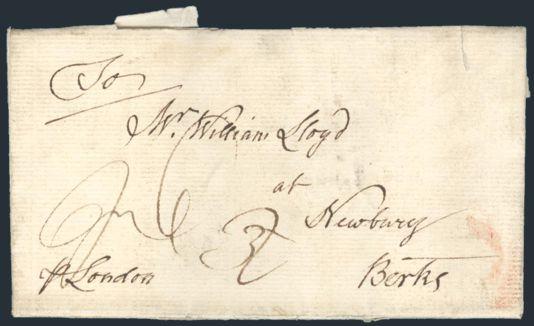 To
Mr. William Lloyd
at
Newbury
Berks
London